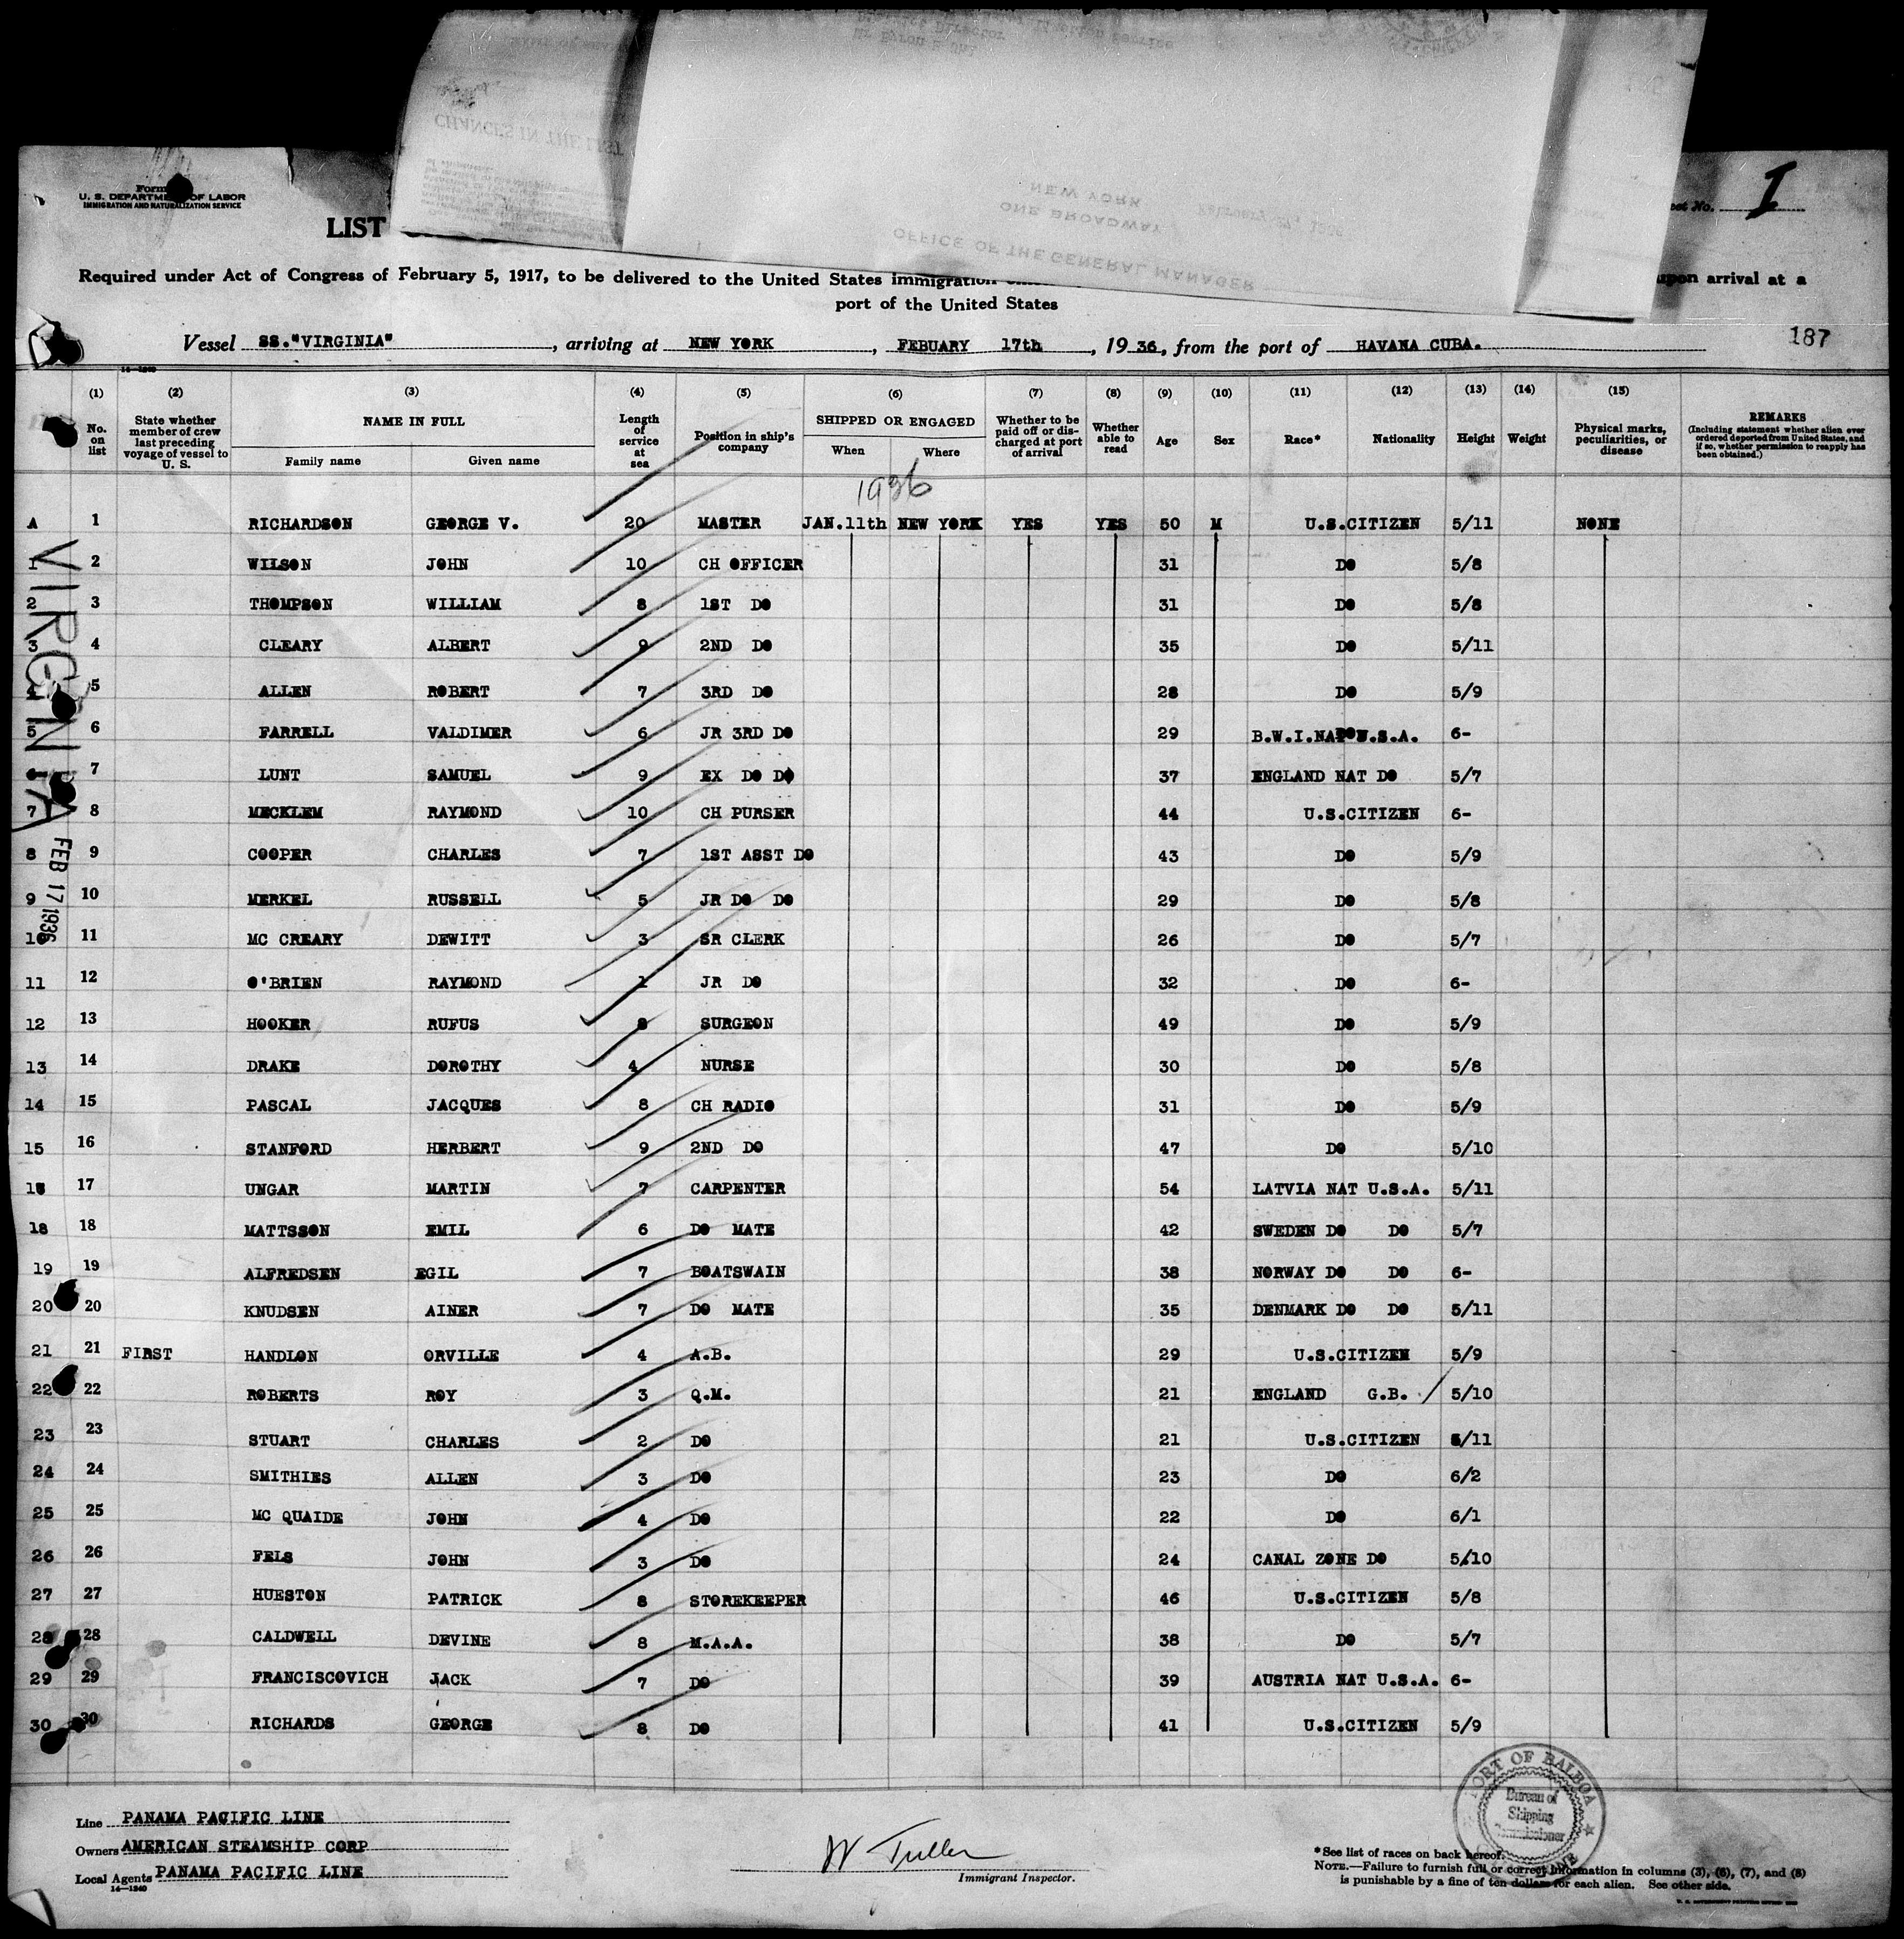 Form
U. S. DEPARTMENT OF LABOR
IMMIGRATION AND NATURALIZATION SERVICE
CHANGES IN THE LIST
NEW YORK
ONE BROADWAY
OFFICE OF THE GENERAL MANAGER
February 27, 1936
No. I
LIST
Required under Act of Congress of February 5, 1917, to be delivered to the United States immigration upon arrival at a
port of the United States
Vessel SS."VIRGINIA", arriving at NEW YORK, FEBUARY 17th, 1936, from the port of HAVANA CUBA.
187
(1) (2) (3) (4) (5) (6) (7) (8) (9) (10) (11) (12) (13) (14) (15)
No. on list
State whether member of crew last preceding voyage of vessel to U. S.
NAME IN FULL
Family name Given name
Length of service at sea
Position in ship's company
SHIPPED OR ENGAGED
When Where
Whether to be paid off or discharged at port of arrival
Whether able to read
Age Sex Race* Nationality Height Weight
Physical marks, peculiarities, or disease
REMARKS
(Including statement whether alien ever ordered deported from United States, and if so, whether permission to reapply has been obtained.)
1936
A 1 RICHARDSON GEORGE V. 20 MASTER JAN.11th NEW YORK YES YES 50 M U.S.CITIZEN 5/11 NONE
1 2 WILSON JOHN 10 CH OFFICER 31 DO 5/8
2 3 THOMPSON WILLIAM 8 1ST DO 31 DO 5/8
3 4 CLEARY ALBERT 9 2ND DO 35 DO 5/11
4 5 ALLEN ROBERT 7 3RD DO 28 DO 5/9
5 6 FARRELL VALDIMER 6 JR 3RD DO 29 B.W.I.NAT U.S.A. 6-
6 7 LUNT SAMUEL 9 EX DO DO 37 ENGLAND NAT DO 5/7
7 8 MECKLEM RAYMOND 10 CH PURSER 44 U.S.CITIZEN 6-
8 9 COOPER CHARLES 7 1ST ASST DO 43 DO 5/9
9 10 MERKEL RUSSELL 5 JR DO DO 29 DO 5/8
10 11 MC CREARY DEWITT 3 SR CLERK 26 DO 5/7
11 12 O'BRIEN RAYMOND 1 JR DO 32 DO 6-
12 13 HOOKER RUFUS 8 SURGEON 49 DO 5/9
13 14 DRAKE DOROTHY 4 NURSE 30 DO 5/8
14 15 PASCAL JACQUES 8 CH RADIO 31 DO 5/9
15 16 STANFORD HERBERT 9 2ND DO 47 DO 5/10
17 UNGAR MARTIN 7 CARPENTER 54 LATVIA NAT U.S.A. 5/11
18 18 MATTSSON EMIL 6 DO MATE 42 SWEDEN DO DO 5/7
19 19 ALFREDSEN EGIL 7 BOATSWAIN 38 NORWAY DO DO 6-
20 20 KNUDSEN AINER 7 DO MATE 35 DENMARK DO DO 5/11
21 21 FIRST HANDLON ORVILLE 4 A.B. 29 U.S.CITIZEN 5/9
22 22 ROBERTS ROY 3 Q.M. 21 ENGLAND G.B. 5/10
23 23 STUART CHARLES 2 DO 21 U.S.CITIZEN 5/11
24 24 SMITHIES ALLEN 3 DO 23 DO 6/2
25 25 MC QUAIDE JOHN 4 DO 22 DO 6/1
26 26 FELS JOHN 3 DO 24 CANAL ZONE DO 5/10
27 27 HUESTON PATRICK 8 STOREKEEPER 46 U.S.CITIZEN 5/8
28 28 CALDWELL DEVINE 8 M.A.A. 38 DO 5/7
29 29 FRANCISCOVICH JACK 7 DO 39 AUSTRIA NAT U.S.A. 6-
30 30 RICHARDS GEORGE 8 DO 41 U.S.CITIZEN 5/9
VIRGINIA
FEB 17 1936
Line PANAMA PACIFIC LINE
Owners AMERICAN STEAMSHIP CORP
Local Agents PANAMA PACIFIC LINE
14—1240
W Tuller
Immigrant Inspector.
PORT OF BALBOA
Bureau of
Shipping
Commissioner
*See list of races on back hereof.
NOTE.—Failure to furnish full or correct information in columns (3), (6), (7), and (8)
is punishable by a fine of ten dollars for each alien. See other side.